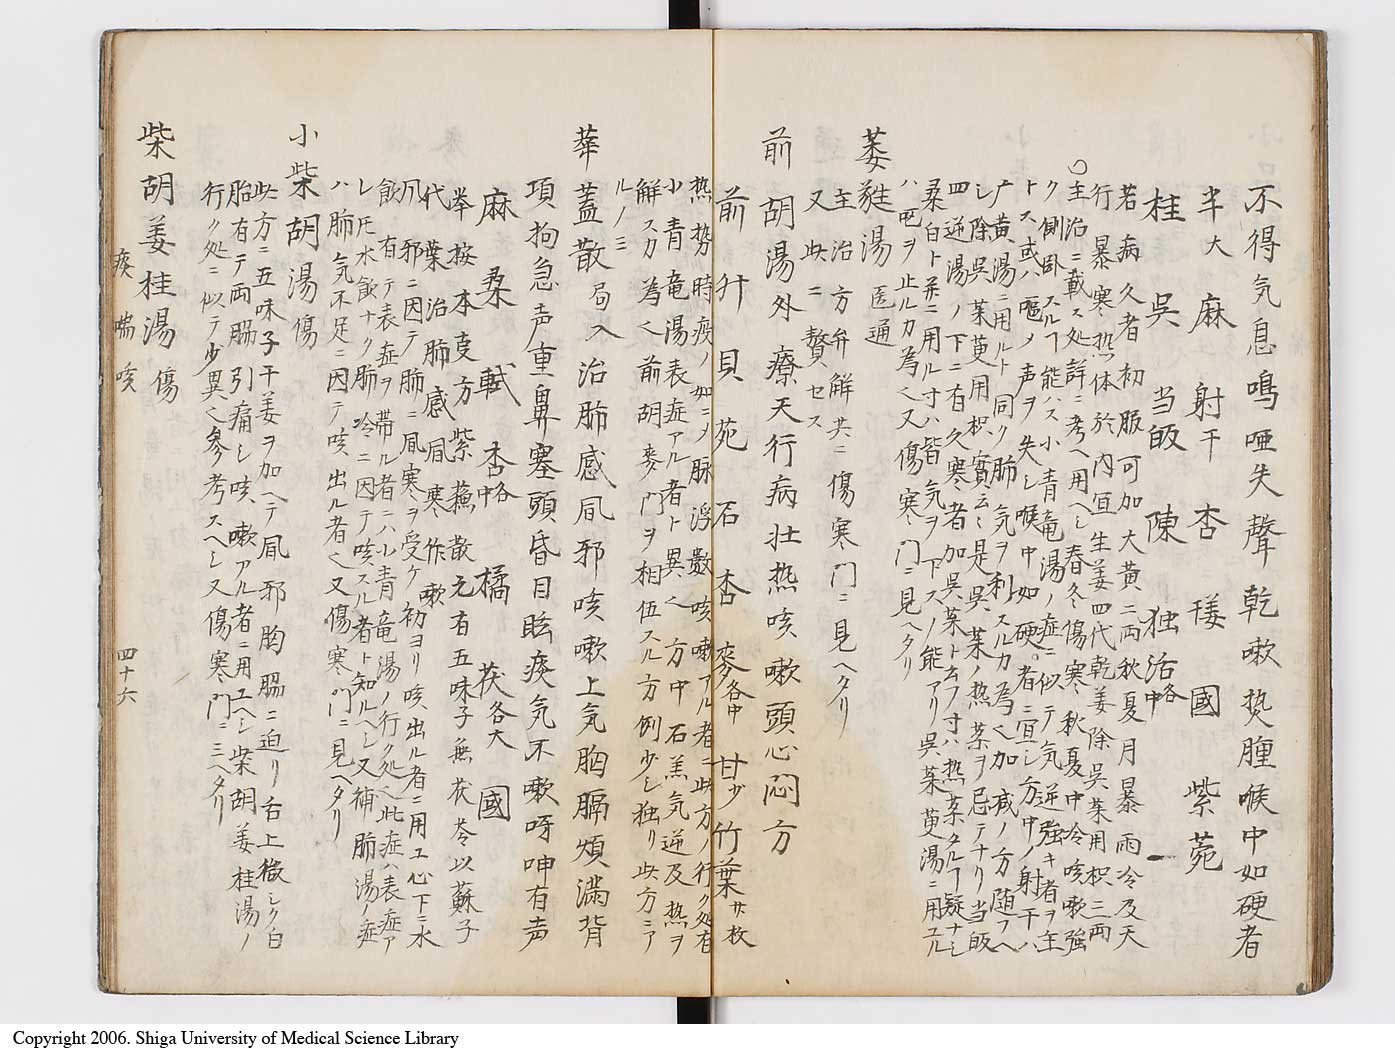 不得気息鳴唖失聲乾嗽熱腫喉中如硬者
半大 麻 射干 杏 䅹 國 紫菀
桂 呉 当皈 陳 独活各中 一
若病久者初服可加大黄二両秋夏月暴雨冷及天
行暴寒热体於内宜生姜四代乾姜除呉茱用枳三両
○主治ニ載ス処詳ニ考ヘ用ヘシ春冬傷寒秋夏中冷咳嗽強
ク側卧スルヿ能ハス小青竜湯ノ症ニ似テ気逆強キ者ヲ主
トス或ハ嘔ノ声ヲ失シ喉中如硬者ニ宜シ方中ノ射干ハ
广黄湯ニ用ルト同ク肺気ヲ利スルカ為ㄑ加减ノ方随フヘ
シ除呉茱萸用枳實云々是呉茱ノ热薬ヲ忌テナリ当皈
四逆湯ノ下ニ有久寒者加呉茱ト云フ寸ハ热薬タルヿ疑ナシ
桑白ト并ニ用ル寸ハ皆気ヲ下スノ能アリ呉茱萸湯ニ用ユル
ハ吧ヲ止ルカ為ㄑ又傷寒門ニ見ヘタリ
萎蕤湯 医通
主治方弁解共ニ傷寒門ニ見ヘタリ
又此ニ贅セス
前胡湯外療天行病壮热咳嗽頭心悶方
前 升 貝 苑 石 杏 麥各中 甘少 竹葉廿枚
热勢時疫ノ如ニノ脉浮数咳嗽アル者ニ此方ノ行ク処有
小青竜湯表症アル者ト異ㄑ方中石羔気逆及热ヲ
解スカ為ㄑ前胡麥門ヲ相伍スル方例少シ独リ此方ニア
ルノミ
華蓋散局入治肺感凨邪咳嗽上気胸膈煩滿背
項拘急声重鼻塞頭昏目眩痰気不嗽呀呻有声
麻 桑 甙 杏各中 橘 茯各大 國
挙按本麦方紫蘓散元有五味子無茯苓以蘇子
代葉治肺感凨寒作嗽
凨邪ニ因テ肺ニ凨寒ヲ受ケ初ヨリ咳出ル者ニ用ユ心下ニ水
飲有テ表症ヲ帯ル者ニハ小青竜湯ノ行ク処ㄑ此症ハ表症ア
レ𪜈水飲ナク肺冷ニ因テ咳スル者ト知ルヘシ又補肺湯ノ症
ハ肺気不足ニ因テ咳出ル者ㄑ又傷寒門ニ見ヘタリ
小柴胡湯傷
此方ニ五味子干姜ヲ加ヘテ凨邪胸脇ニ迫リ舌上微シク白
胎有テ両脇引痛シ咳嗽アル者ニ用エヘシ柴胡姜桂湯ノ
行ク処ニ似テ少異ㄑ参考スヘシ又傷寒門ニ三ヘタリ
柴胡姜桂湯傷
痰喘咳 四十六
Copyright 2006. Shiga University of Medical Science Library